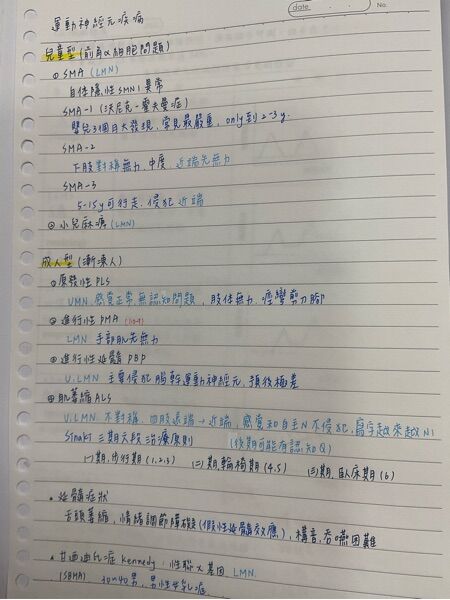 date
No.
運動神經元疾病
兒童型 (前角α細胞問題)
① SMA (LMN)
自体隱性SMN1異常
SMA-1 (沃尼克-霍夫曼症)
嬰兒3個月大發現,常見最嚴重,only到2-3y.
SMA-2
下肢對稱無力,中度,近端先無力
SMA-3
5-15y可行走,侵犯近端
② 小兒麻痺 (LMN)
成人型 (漸凍人)
① 原發性 PLS
UMN 感覺正常無認知問題,肢体無力,痙攣剪刀腳
② 進行性 PMA
LMN 手部肌先無力
③ 進行性延髓 PBP
U.LMN 主要侵犯腦幹運動神經元,預後極差
④ 肌萎縮 ALS
U.LMN 不對稱,四肢遠端→近端,感覺和自主N不侵犯,寫字越來越
Sinaki 三期六段治療原則 (後期可能有認知Q)
(一)期,步行期(1,2,3) (二)期,輪椅期(4,5) (三)期,臥床期(6)
• 延髓症狀
舌頭萎縮,情緒調節障礙(假性延髓效應),構音,吞嚥困難
甘迺迪氏症 Kennedy:性聯X基因 LMN
(SBMA) 30~40男,男性女乳症